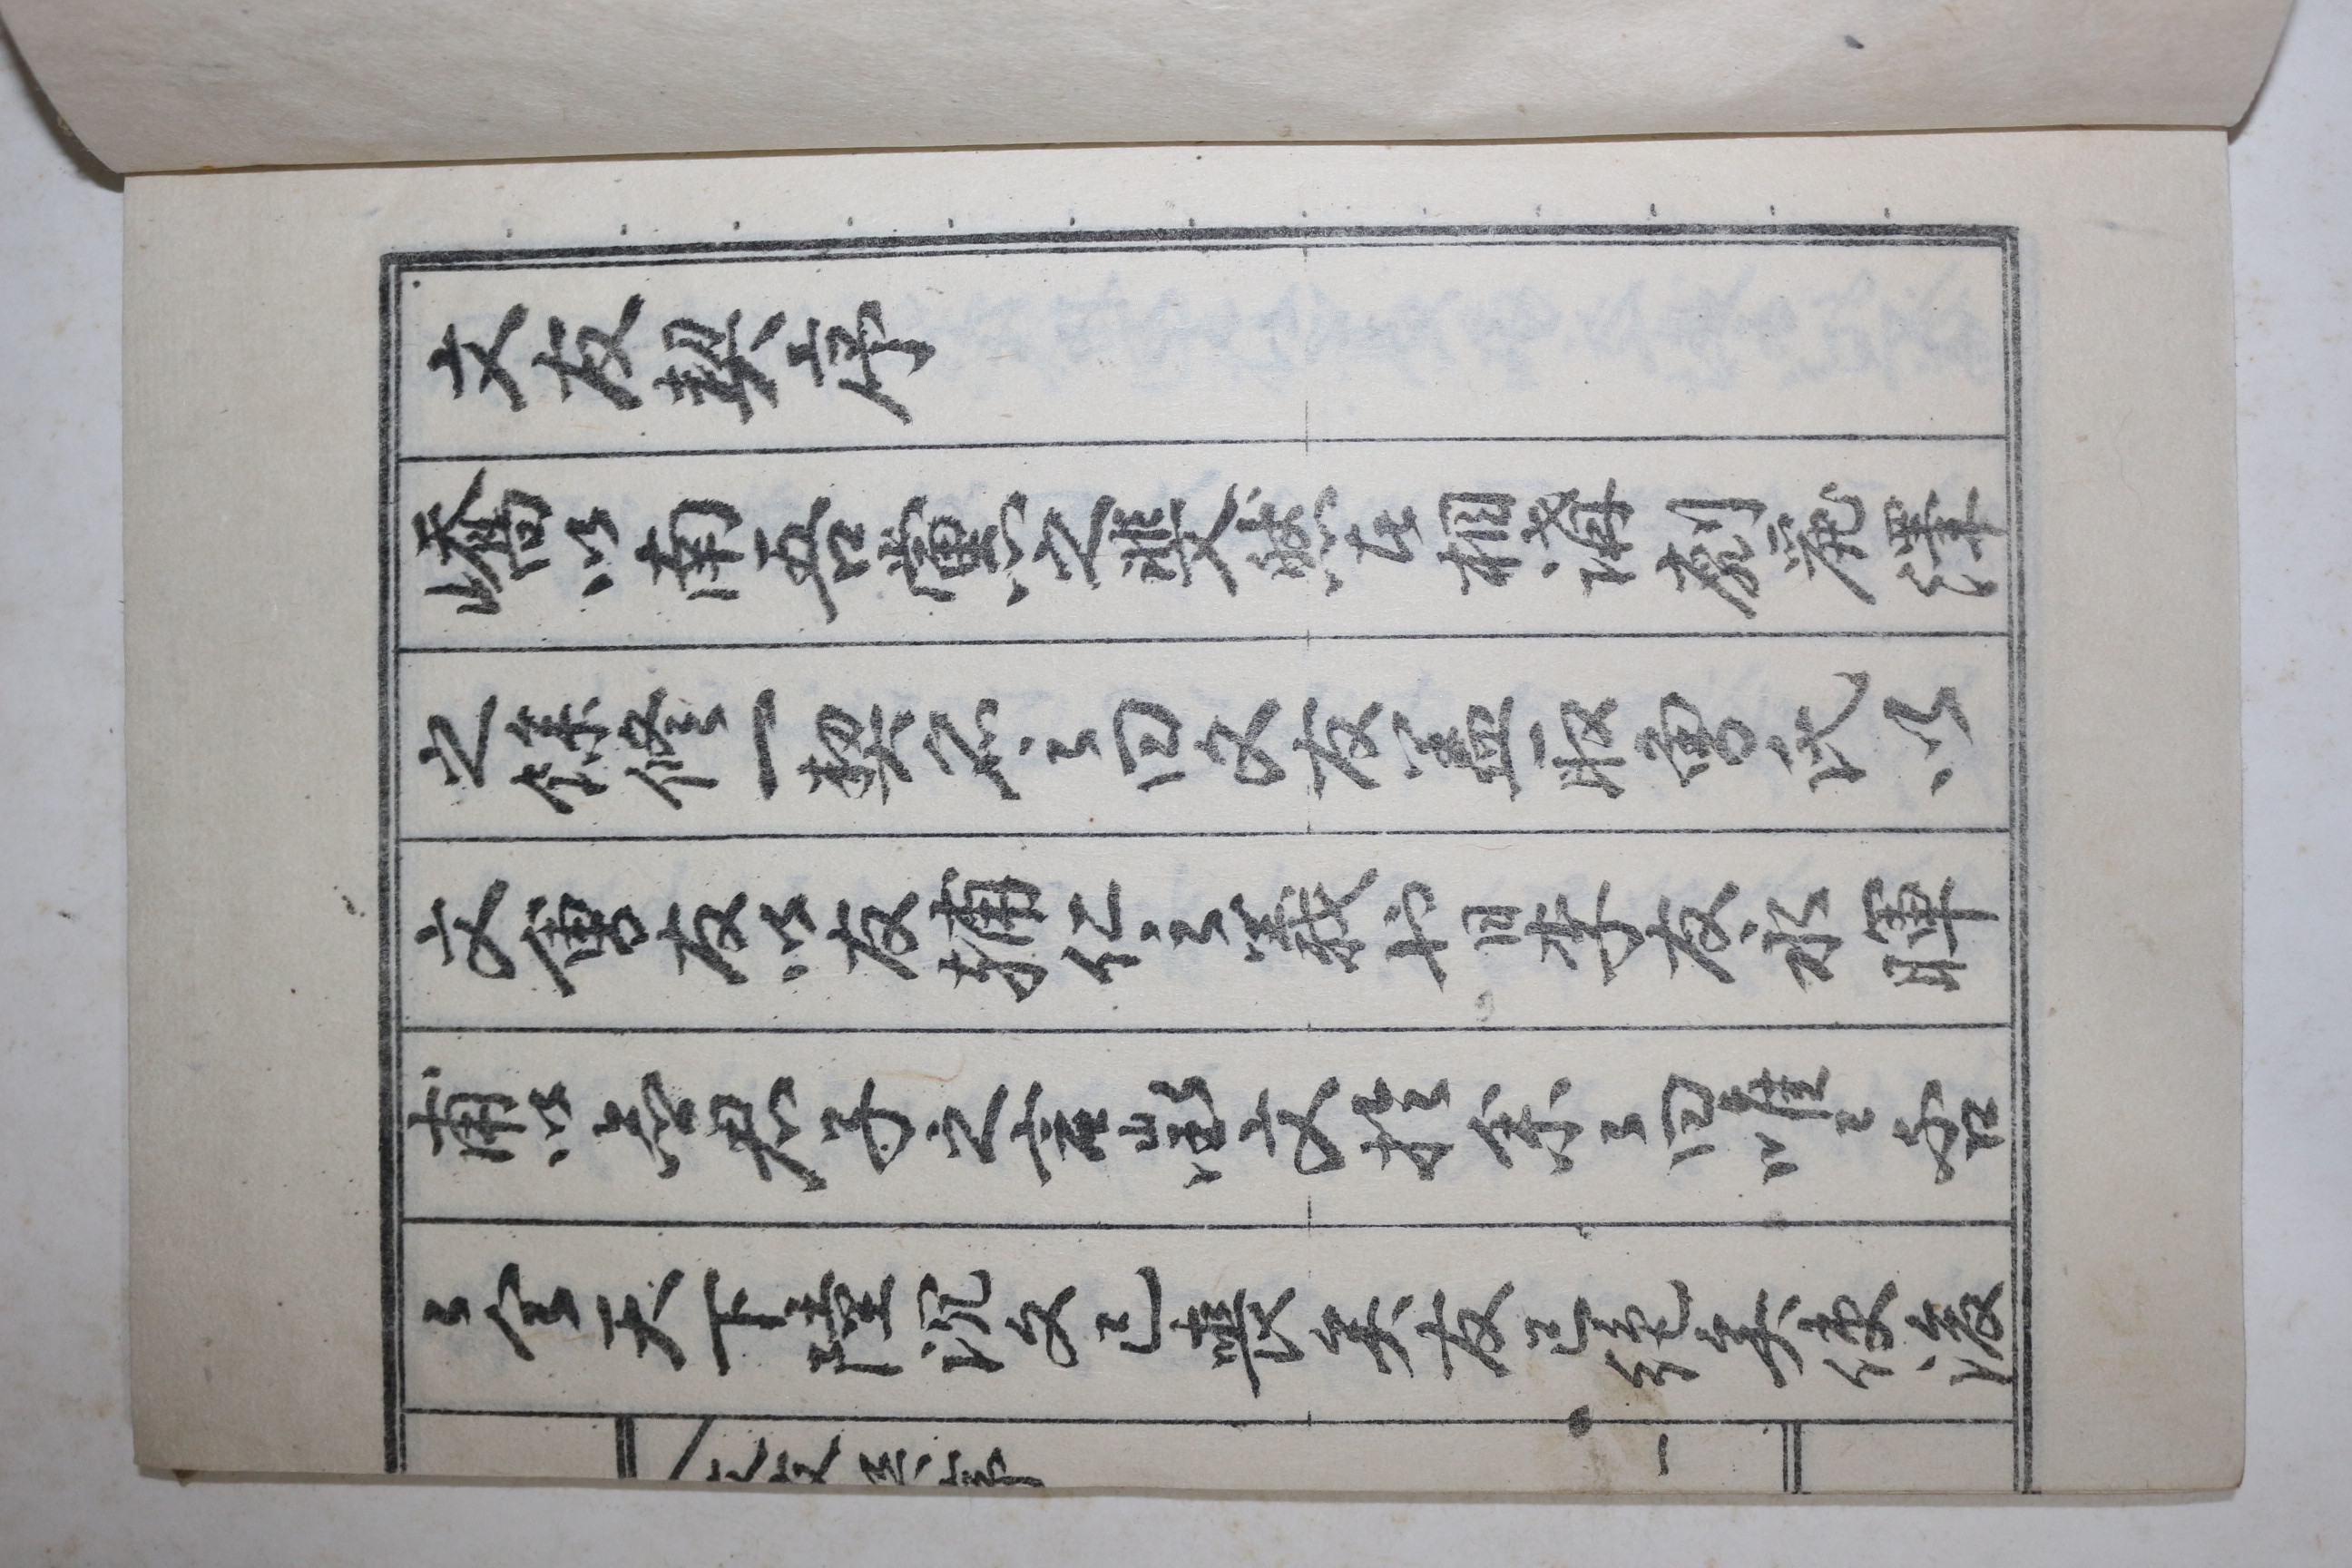 文友契序
嶠以南吾黨之斐然者相講劘麗澤
之餘修一契名之曰文友盖取曾氏以
文會友以友輔仁之義也日李友永暉
甫以僉君子之言徵文於余々曰唯々否
々今天下陸沉文已喪矣友已絶矣使後
文友契
一